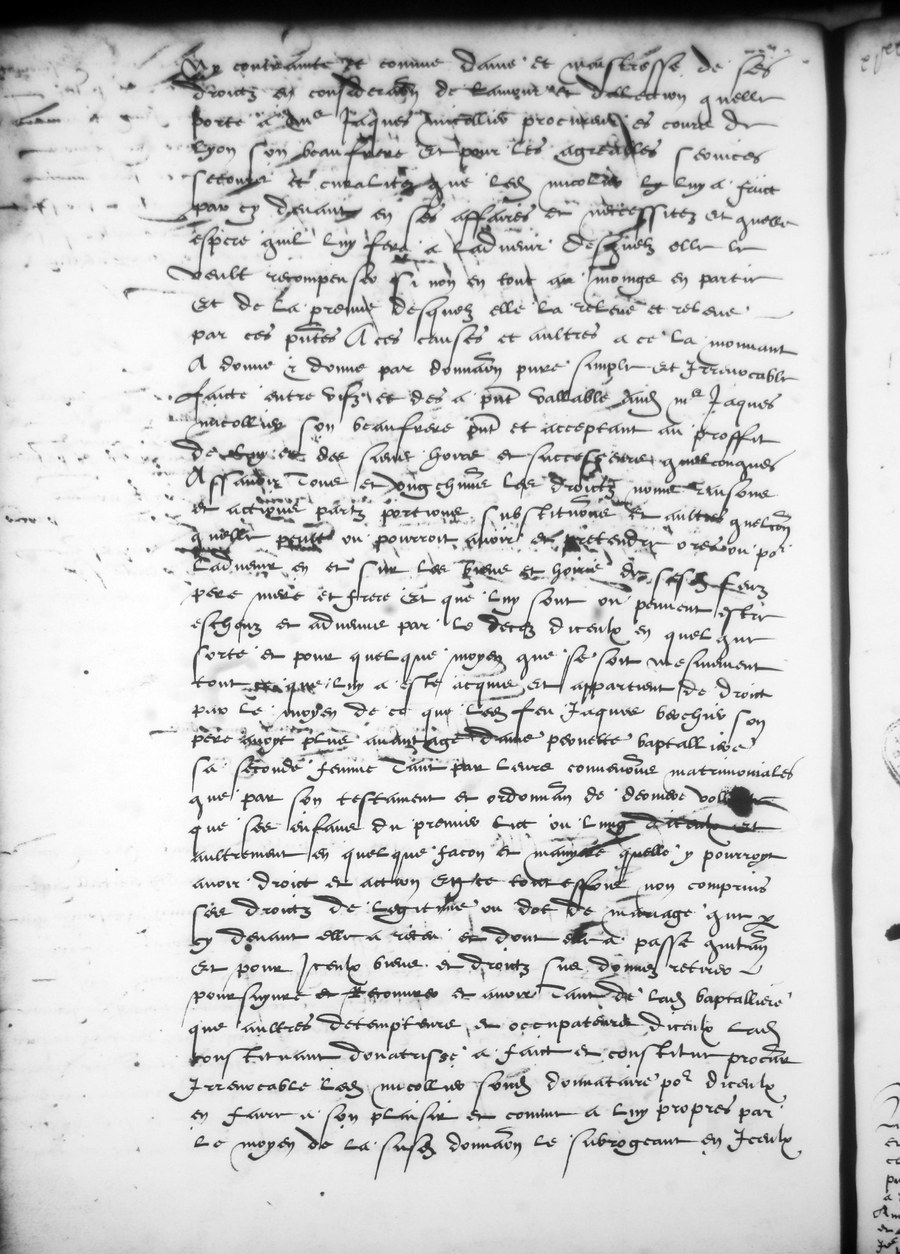 ny contraincte et comme dame et maistresse de ses
droictz en consideraon de lamour et dillection quelle
porte a me Jaques nicollier procureur es cours de
Lyon son beaufrere et pour les agreables services
secours et que led nicollier luy a faict
par cy devant en ses affaires et necessitez et quelle
espere quil luy fera a ladvenir desquelz elle le
veult recompenser si non en tout au moings en partie
Et de la preuve desquelz elle la releve et releve
par ces pntes A ces causes et aultres a ce la mouvant
A donne et donne par donnaon pure simple et Irrevocable
faicte entre vifz et des a pnt vallable aud me Jaques
nicollier son beaufrere pnt et acceptant au proffit
de luy et des siens hoirs et successeurs quelconques
Assavoir Tous et ungchms les droictz noms raisons
et actions partz portions substitutions et aultres quelzcon
quelle peult ou pourroit avoir et pretendre ores ou por
ladvenir en et sur les biens et hoirie de sesd feuz
pere mere et frere Et que luy sont ou peuvent estre
escheuz et advenus par le deces diceulx en quelque
sorte et pour quelque moyen que se soit mesmement
tout que luy a este acquis et appartient de droict
par le moyen de ce que led feu Jaques son
pere avoyt plus avantage dame pernette baptalliere
sa seconde femme Tant par leurs convenons matrimoniales
que par son testament et ordonnan de derniere
que ses enfans du premier lict ou lung diceulx et
aultrement en quelque facon et maniere quelle y pourroyt
avoir droict et action non comprins
ses droictz de legitime ou dot de mariage que par
cy devant elle a receu et dont elle a passe quitan
Et pour Iceulx biens et droictz sus donnes retirer
poursuyvre et recouvrer et avoir Tant de lad baptalliere
que aultres detempteurs et occupateurs diceulx lad
constituant donatrisse a faict et constitue procur
Irrevocable led nicollier sond donnataire por diceulx
en faire a son plaisir et comme a luy propres par
le moyen de la susd donnaon le subrogeant en Iceulx